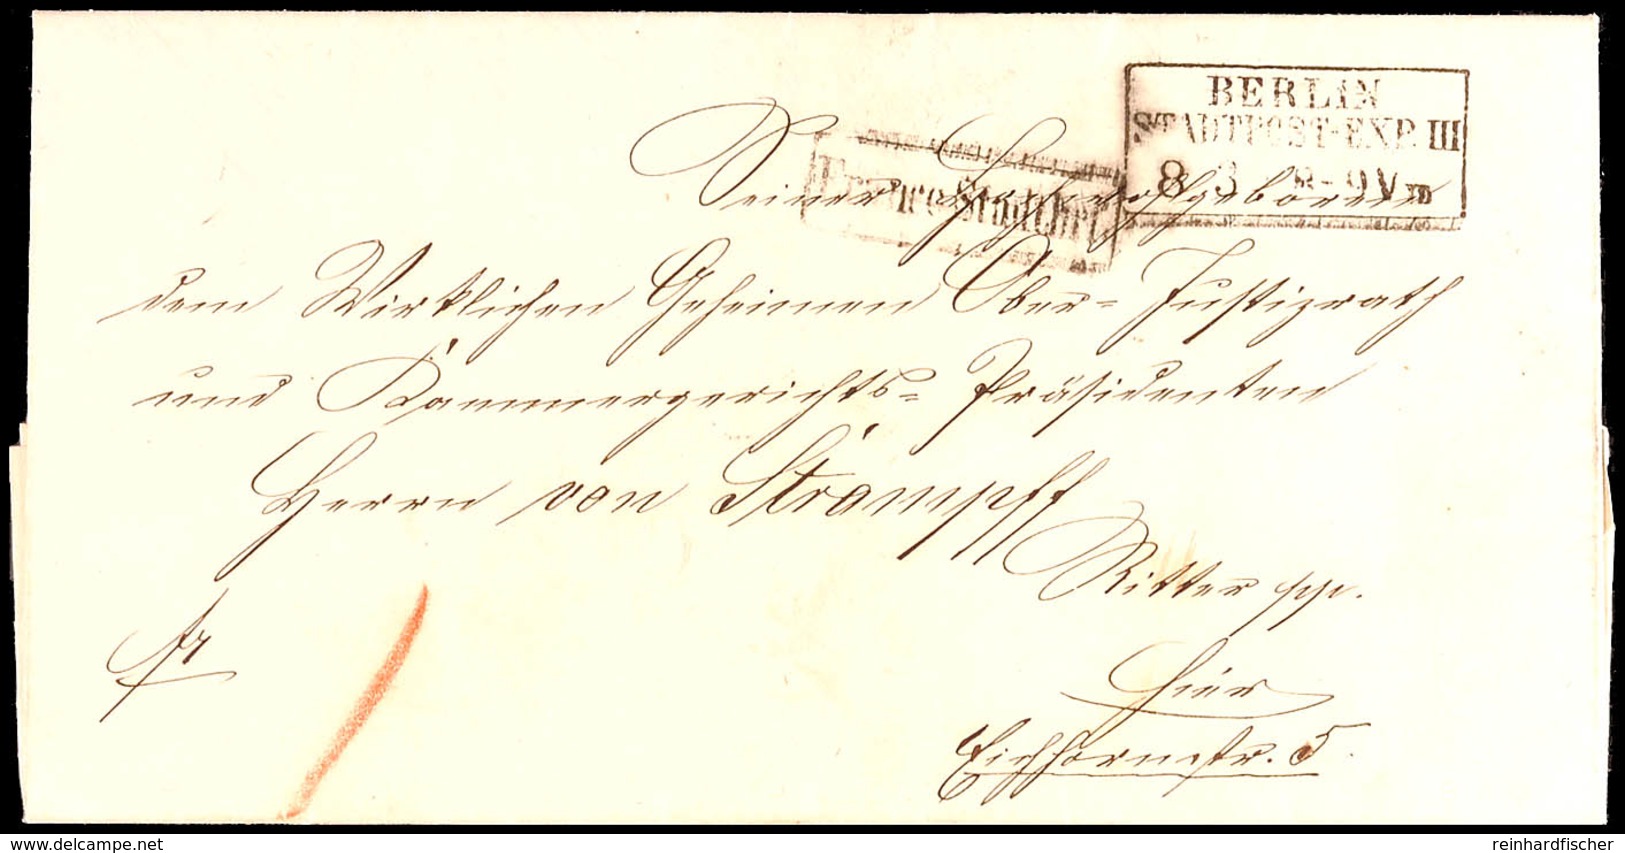 BERLIN
STADTPOST-EXP. III
8 3 8-9 Vm
Franco Stadtbrf
Seiner Hochwohlgeboren
dem Wirklichen Geheimen Ober-Justizrath
und Kammergerichts-Präsidenten
Herrn von Strampff
Ritter pp.
fr
hier
Eichhornstr. 5.
delcampe.net
reinhardfischer